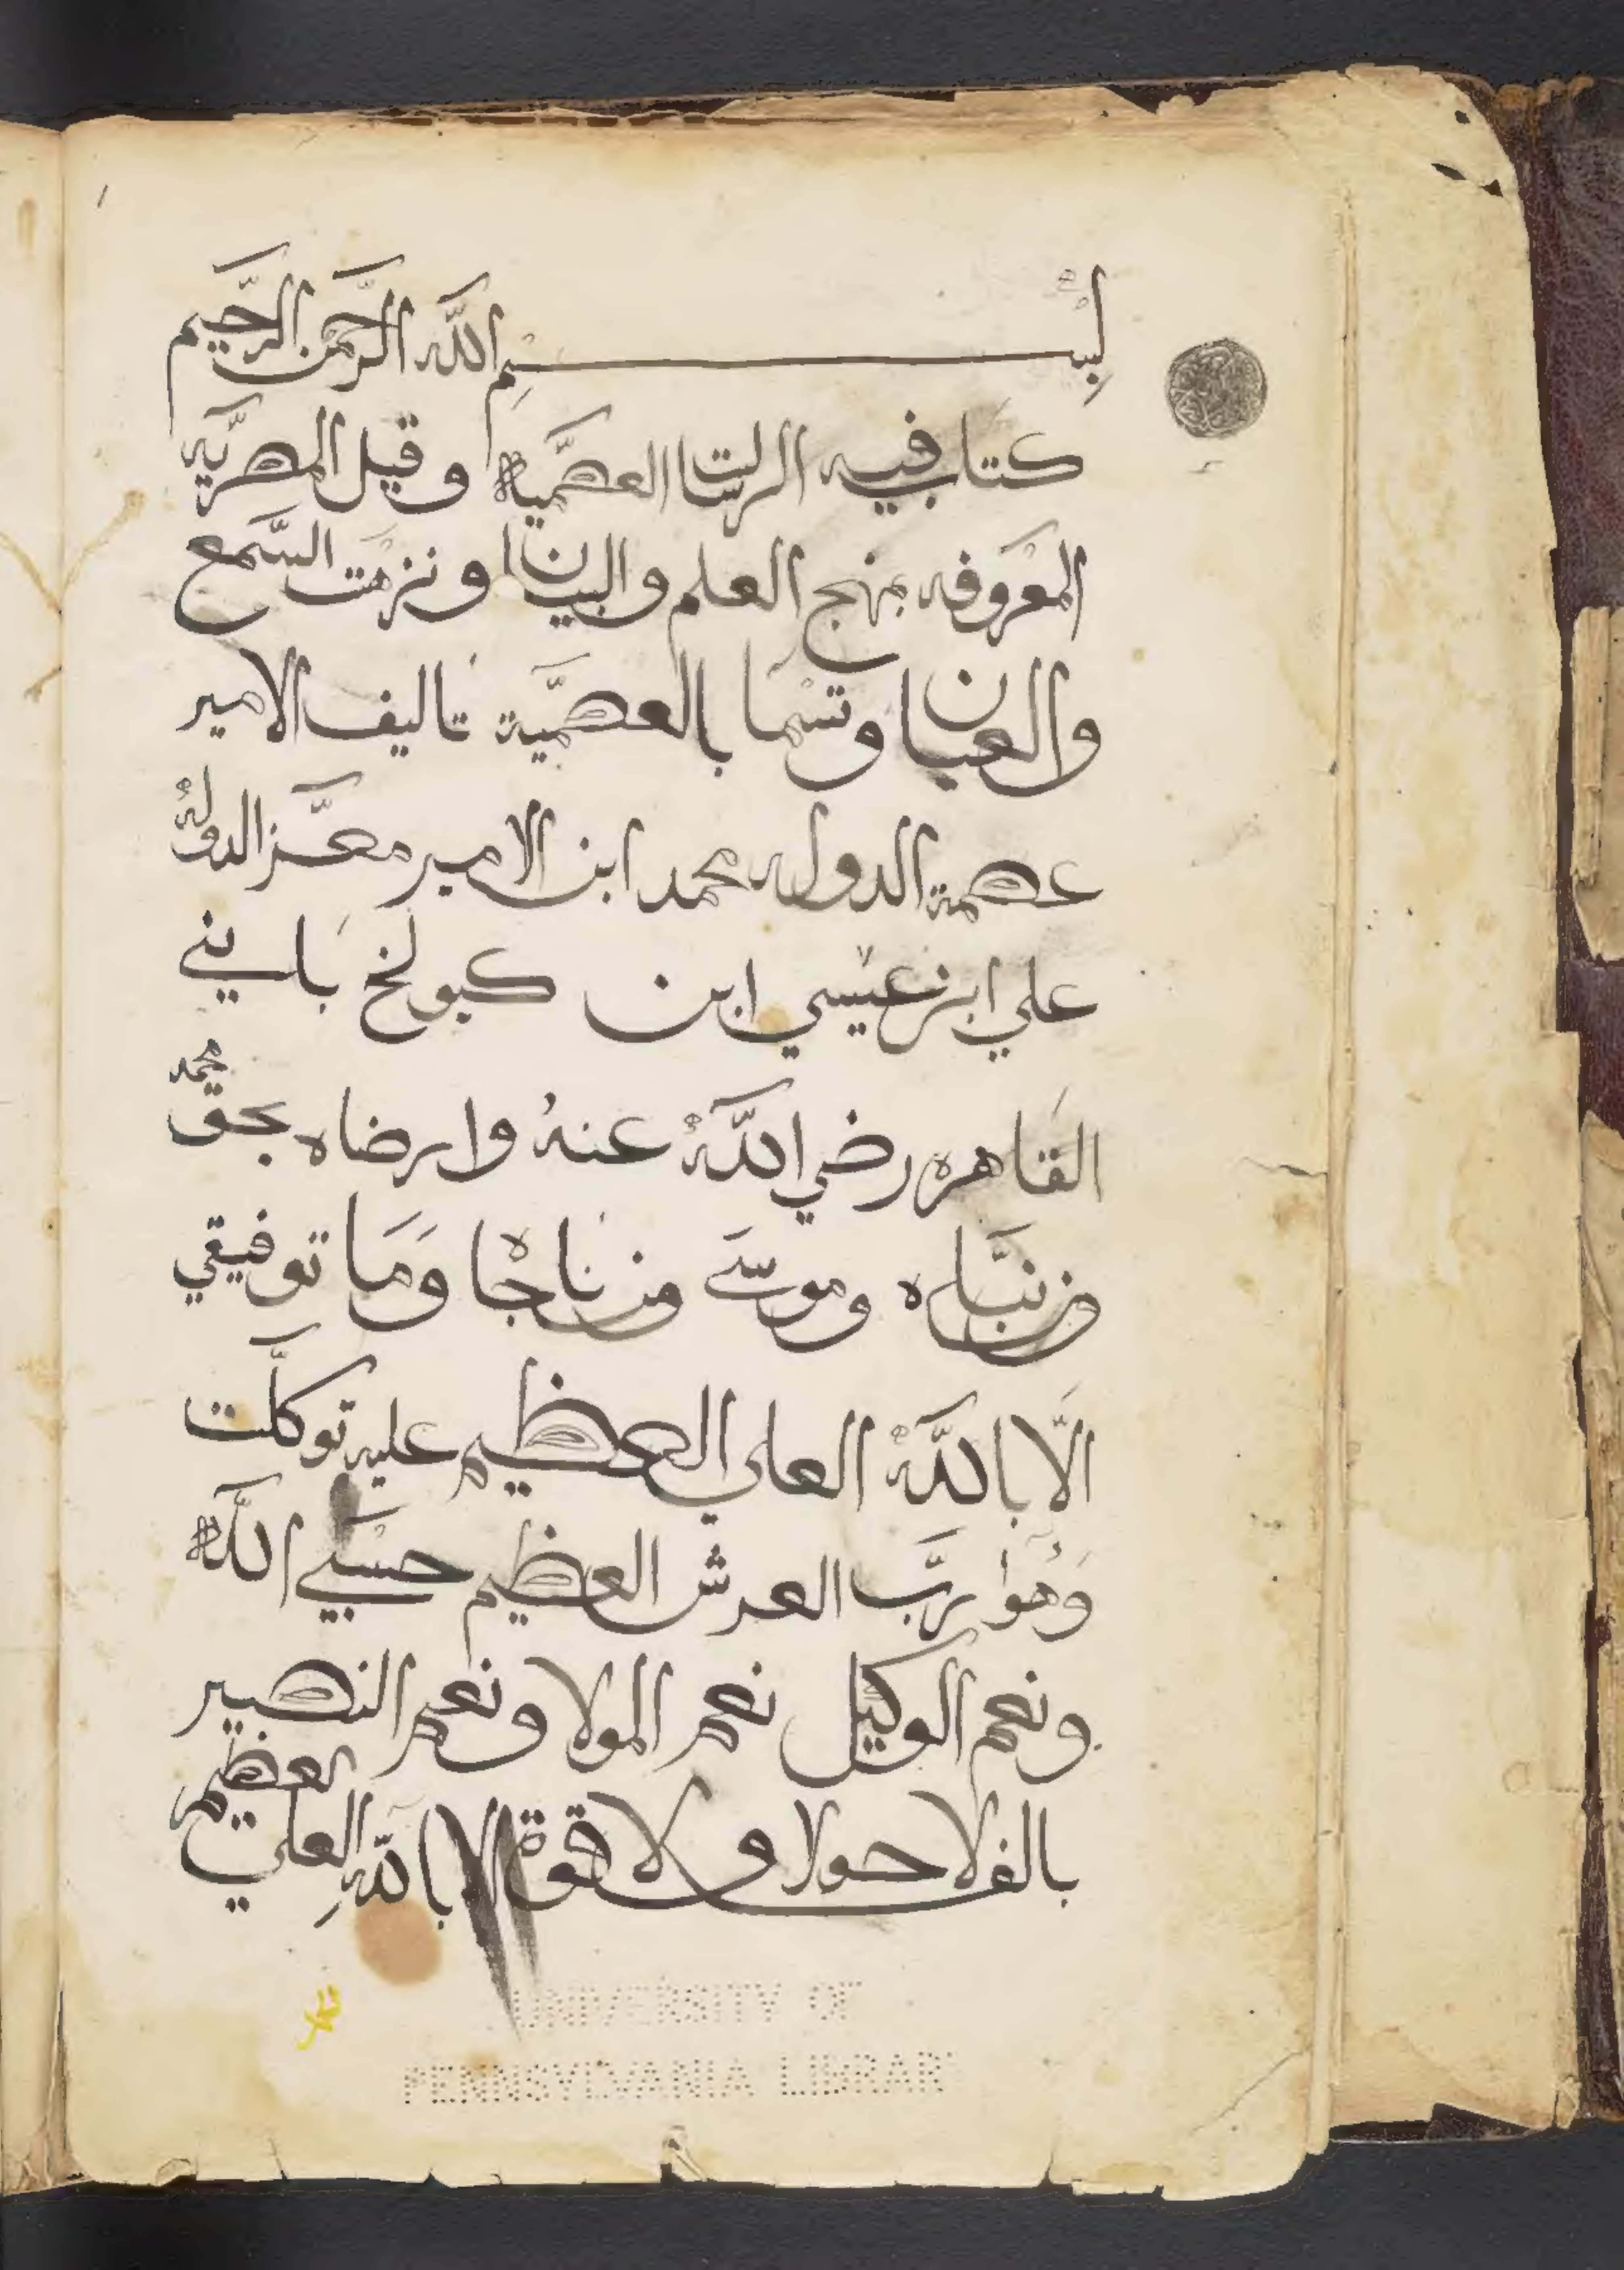 بسم الله الرحمن الرحيم
كتاب فيه الرسالت العصمية وقيل المصريه
المعروفه بمنهج العلم والبيان ونزهت السمع
والعيان وتسما بالعصمية تاليف الامير
عصمة الدوله محمد ابن الامير معز الدوله
علي ابن عيسي ابن كبولخ باني
القاهره رضي الله عنه وارضاه بحق محمد
وموسى وما توفيقي
الا بالله العلي العظيم عليه توكلت
وهوا رب العرش العظيم حسبي الله
ونعم الوكيل نعم المولا ونعم النصير
بالف لا حولا ولا قوة الا بالله العلي العظيم
UNIVERSITY OF
PENNSYLVANIA LIBRARY